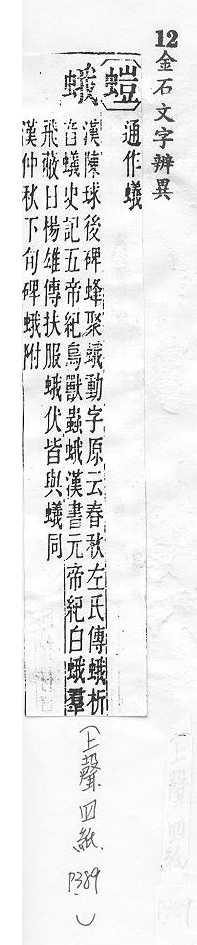 12金石文字辨異
螘
通作蟻
蛾
漢陳球後碑蜂聚蛾動字原云春秋左氏傳蛾析
音蟻史記五帝紀鳥獸蟲蛾漢書元帝紀白蛾羣
飛蔽日楊雄傳扶服蛾伏皆與蟻同
漢仲秋下旬碑蛾附
(上聲四紙 P389)